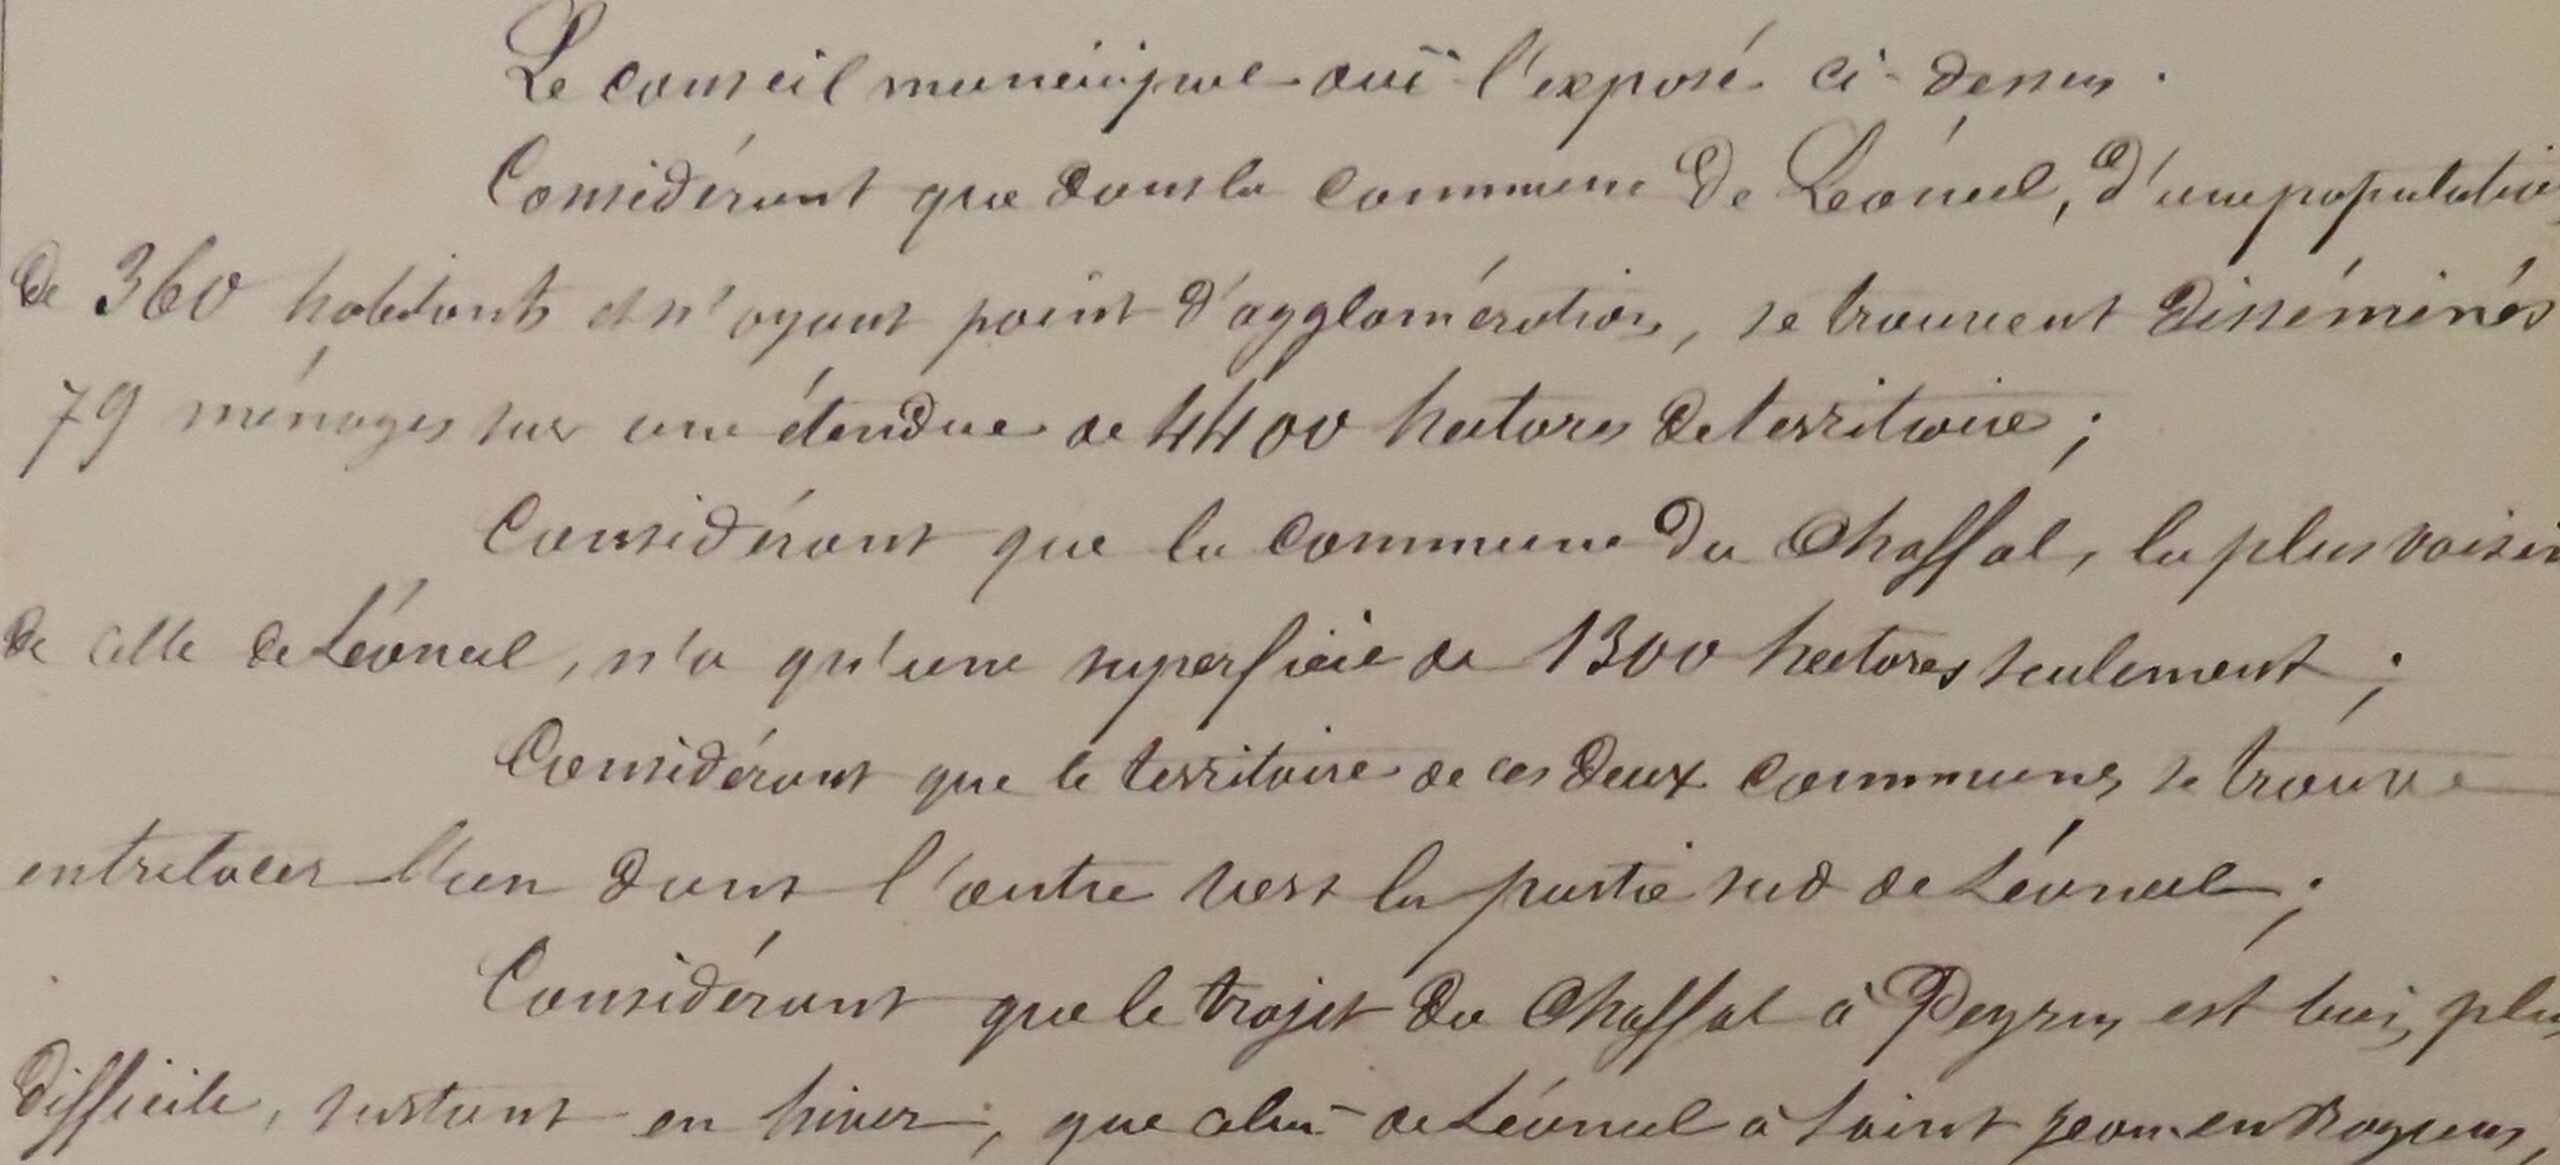 Le conseil municipal ouï l'exposé ci-dessus.
Considérant que dans la commune de Léoncel, d'une population
de 360 habitants et n'ayant point d'agglomération, se trouvent disséminés
79 ménages sur une étendue de 4400 hectares de territoire ;
Considérant que la commune du Chaffal, la plus voisin
de celle de Léoncel, n'a qu'une superficie de 1300 hectares seulement ;
Considérant que le territoire de ces deux communes se trouve
entrelacer l'un dans l'autre vers la partie sud de Léoncel ;
Considérant que le trajet du Chaffal à Peyrus est bien plus
difficile, surtout en hiver, que celui de Léoncel à Saint Jean en Royans,